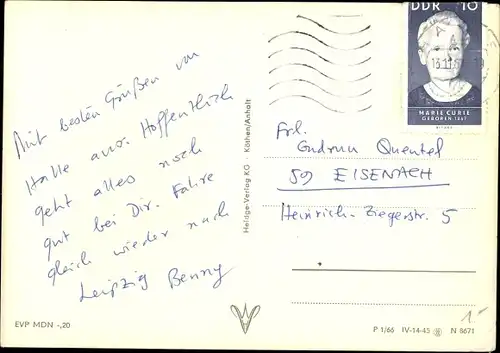 Mit besten Grüßen von
Halle aus. Hoffentlich
geht alles noch
gut bei Dir. Fahre
gleich wieder nach
Leipzig Benny
EVP MDN -,20
Heldge-Verlag KG · Köthen/Anhalt
DDR 10
MARIE CURIE
GEBOREN 1867
Frl.
Gudrun Quentel
59 EISENACH
Heinrich-Ziegerstr. 5
P 1/66 IV-14-45 N 8671
1.-